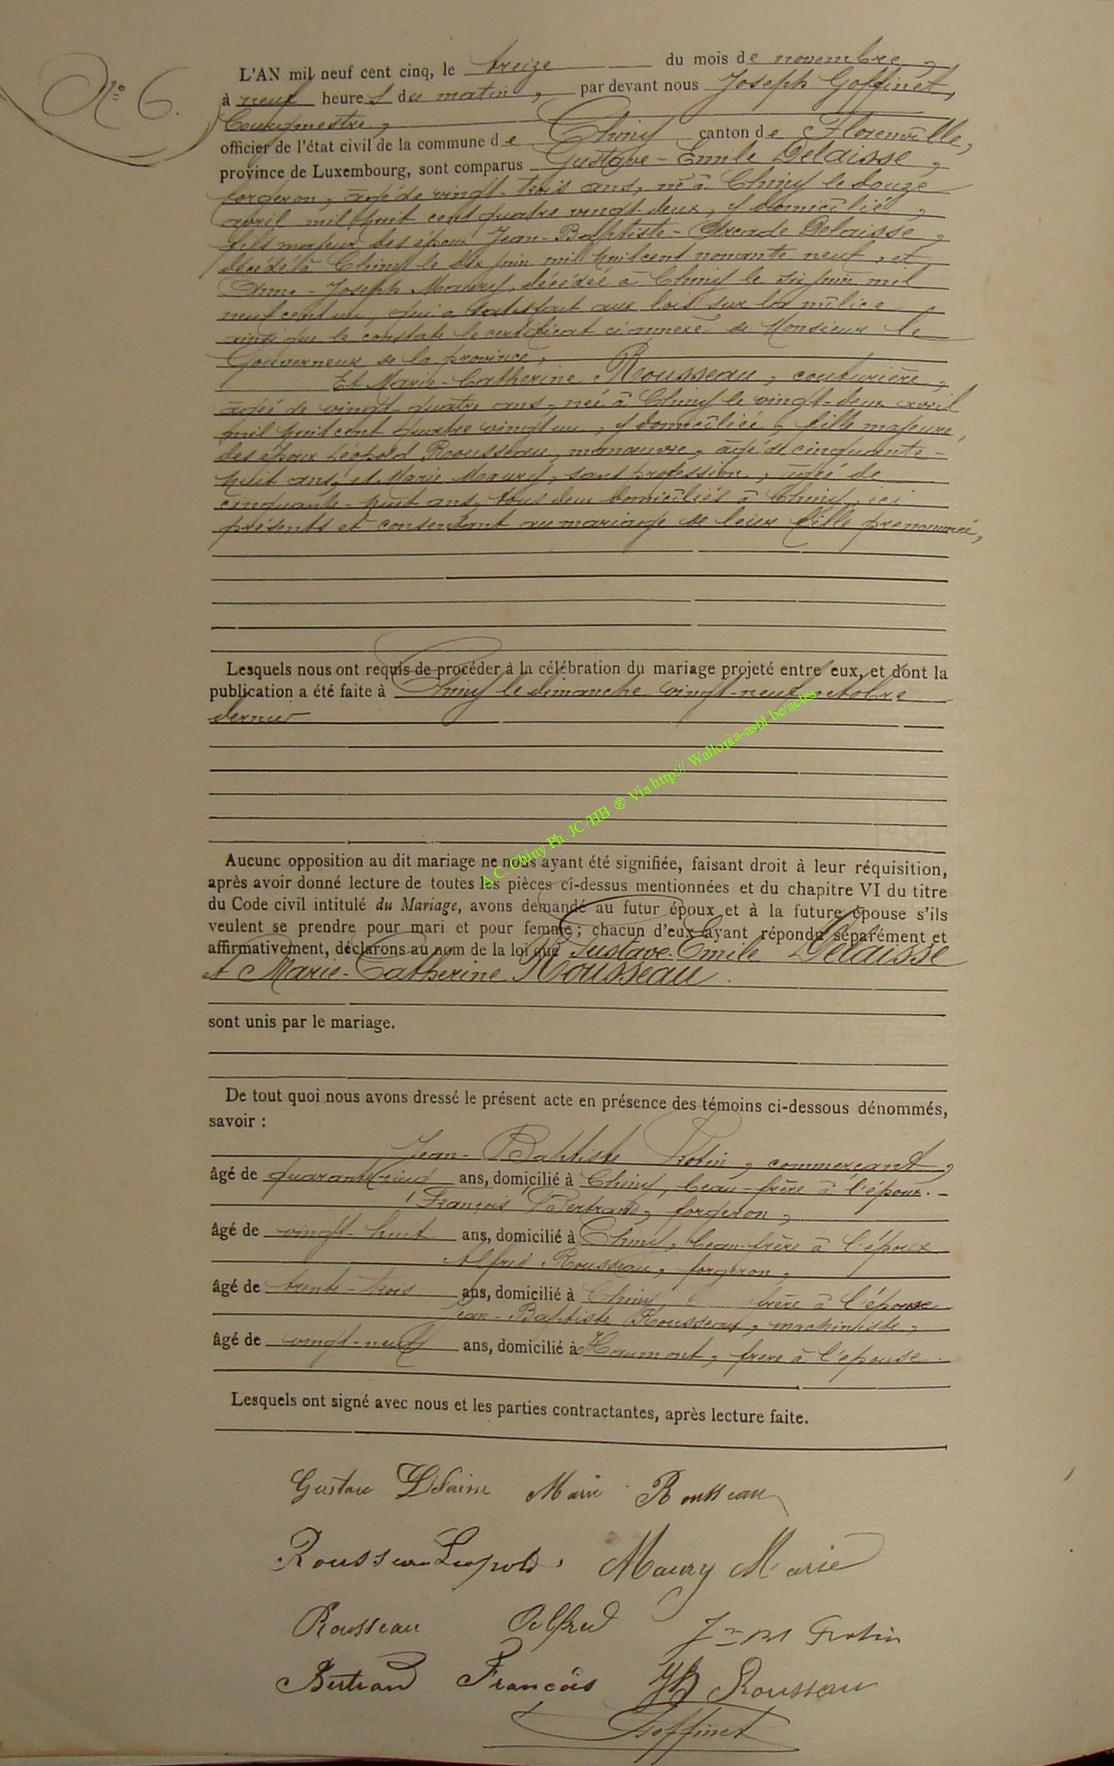 N° 6.
L'AN mil neuf cent cinq, le treize du mois de novembre,
à neuf heures du matin, par devant nous Joseph Goffinet,
Bourgmestre,
officier de l'état civil de la commune de Chiny canton de Florenville,
province de Luxembourg, sont comparus Gustave-Emile Delaisse,
forgeron, âgé de vingt-trois ans, né à Chiny le douze
avril mil huit cent quatre vingt-deux, y domicilié,
fils majeur des époux Jean-Baptiste-Arcade Delaisse,
décédé à Chiny le dix juin mil huit cent nonante neuf, et
Anne-Joseph Maury, décédée à Chiny le six juin mil
neuf cent un, qui a satisfait aux lois sur la milice
ainsi que le constate le certificat ci annexé de Monsieur le
Gouverneur de la province,
Et Marie-Catherine Rousseau, couturière,
âgée de vingt quatre ans, née à Chiny le vingt-deux avril
mil huit cent quatre vingt un, y domiciliée, fille majeure,
des époux Léopold Rousseau, manœuvre, âgé de cinquante-
huit ans, et Marie Maury, sans profession, âgée de
cinquante-huit ans, tous deux domiciliés à Chiny, ici
présents et consentant au mariage de leur fille prénommée,
Lesquels nous ont requis de procéder à la célébration du mariage projeté entre eux, et dont la
publication a été faite à Chiny le dimanche vingt-neuf octobre
dernier
A.C. Chiny Ph. JC/HB ® Via http:// Wallonia-asbl.be/actes
Aucune opposition au dit mariage ne nous ayant été signifiée, faisant droit à leur réquisition,
après avoir donné lecture de toutes les pièces ci-dessus mentionnées et du chapitre VI du titre
du Code civil intitulé du Mariage, avons demandé au futur époux et à la future épouse s'ils
veulent se prendre pour mari et pour femme; chacun d'eux ayant répondu séparément et
affirmativement, déclarons au nom de la loi que Gustave-Emile Delaisse
et Marie-Catherine Rousseau.
sont unis par le mariage.
De tout quoi nous avons dressé le présent acte en présence des témoins ci-dessous dénommés,
savoir :
Jean-Baptiste Frotin, commerçant,
âgé de ans, domicilié à Chiny, beau-frère à l'époux.
François Bertrand, forgeron,
âgé de vingt-huit ans, domicilié à Chiny, beau-frère à l'époux
Alfred Rousseau, forgeron,
âgé de trente-trois ans, domicilié à Chiny frère à l'épouse
Jean-Baptiste Rousseau, machiniste,
âgé de vingt-neuf ans, domicilié à Haumont, frère à l'épouse.
Lesquels ont signé avec nous et les parties contractantes, après lecture faite.
Gustave Delaisse Marie Rousseau
Rousseau Léopold, Maury Marie
Rousseau Alfred Jn Bt Frotin
Bertrand François JB Rousseau
Goffinet